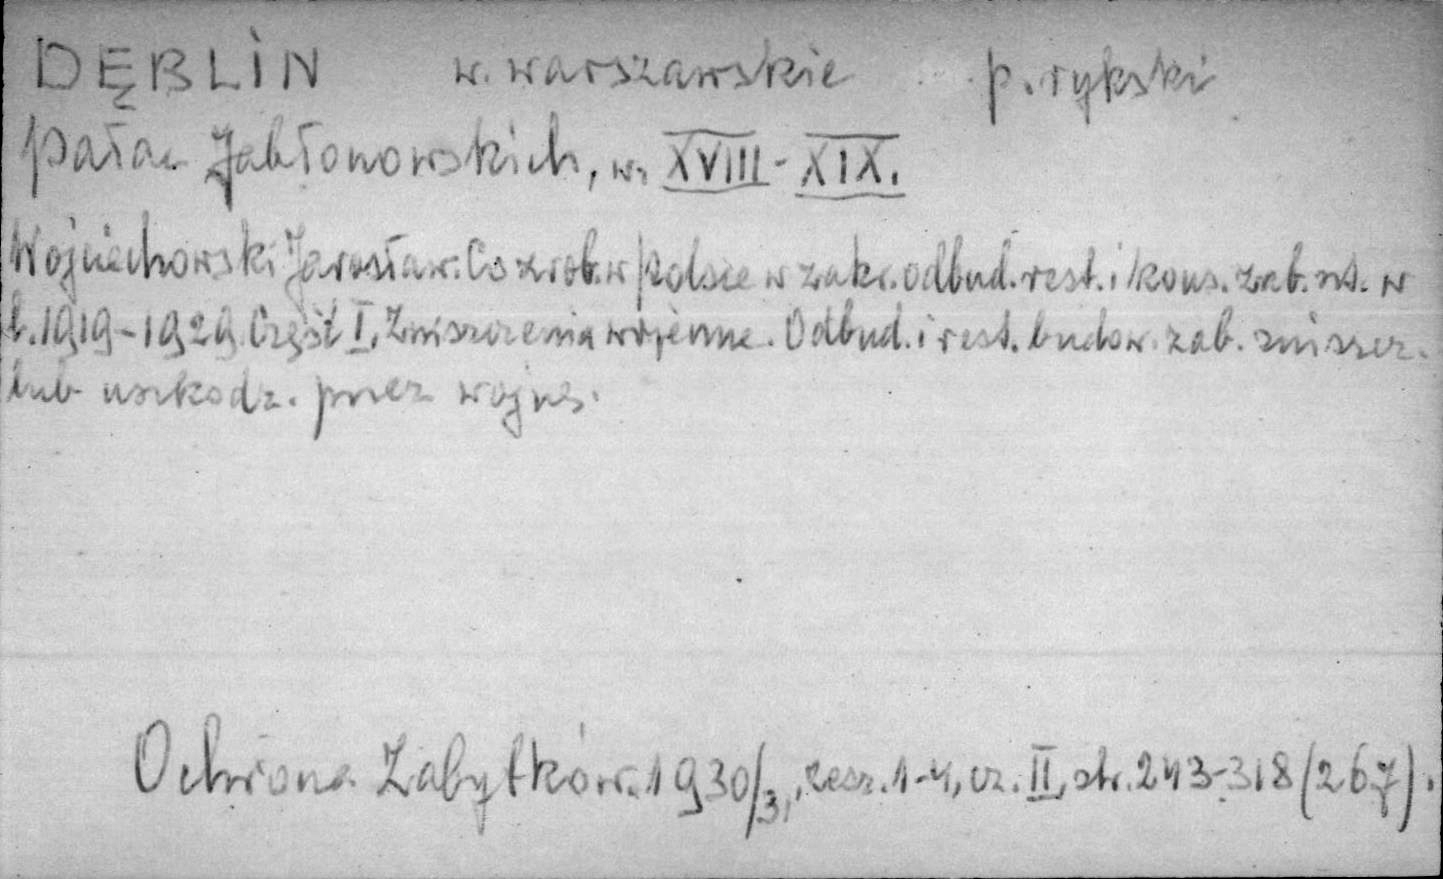 DĘBLIN w. warszawskie p. rykski
Pałac Jabłonowskich, w. XVIII-XIX.
Wojciechowski Jarosław. Co zrob. w Polsce w zakr. odbud. rest. i kons. zab. szt. w
l. 1919-1929. Część I. Zniszczenia wojenne. Odbud. i rest. budow. zab. zniszcz.
lub uszkodz. przez wojnę.
Ochrona Zabytków. 1930/31, zesz. 1-4, cz. II, str. 243-318 (267).